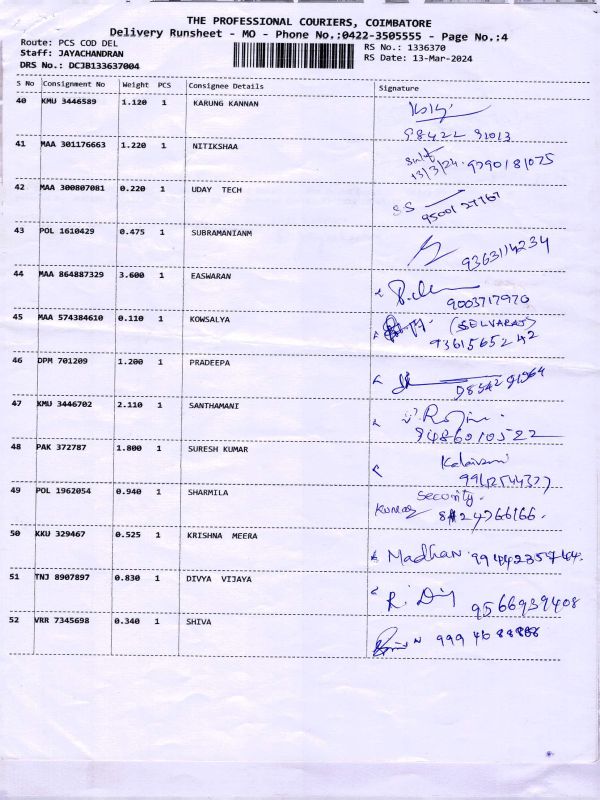 THE PROFESSIONAL COURIERS, COIMBATORE
Delivery Runsheet - MO - Phone No.:0422-3505555 - Page No.:4
Route: PCS COD DEL
RS No.: 1336370
Staff: JAYACHANDRAN
RS Date: 13-Mar-2024
DRS No.: DCJB133637004
S No Consignment No Weight PCS Consignee Details Signature
40 KMU 3446589 1.120 1 KARUNG KANNAN
98422 31013
41 MAA 301176663 1.220 1 NITIKSHAA
13/3/24. 9790181075
42 MAA 300807081 0.220 1 UDAY TECH
SS
43 POL 1610429 0.475 1 SUBRAMANIANM
9363114234
44 MAA 864887329 3.600 1 EASWARAN
9003717970
45 MAA 574384610 0.110 1 KOWSALYA
(SELVARAJ)
9361565242
46 DPM 701209 1.200 1 PRADEEPA
47 KMU 3446702 2.110 1 SANTHAMANI
9486010522
48 PAK 372787 1.800 1 SURESH KUMAR
Kalaivani
49 POL 1962054 0.940 1 SHARMILA
Security.
Kumar 8124766166.
50 KKU 329467 0.525 1 KRISHNA MEERA
Madhan 9944235764.
51 TNJ 8907897 0.830 1 DIVYA VIJAYA
9566939408
52 VRR 7345698 0.340 1 SHIVA